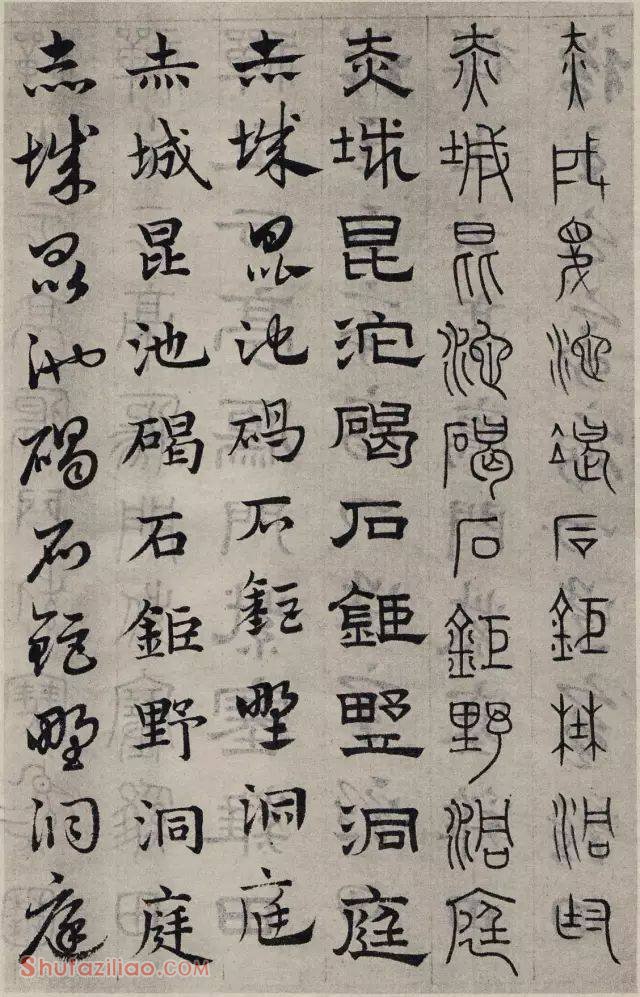 赤城昆池碣石鉅野洞庭
赤城昆池碣石鉅野洞庭
赤城昆池碣石鉅野洞庭
赤城昆池碣石鉅野洞庭
赤城昆池碣石鉅野洞庭
赤城昆池碣石鉅野洞庭
Shufaziliao.COM